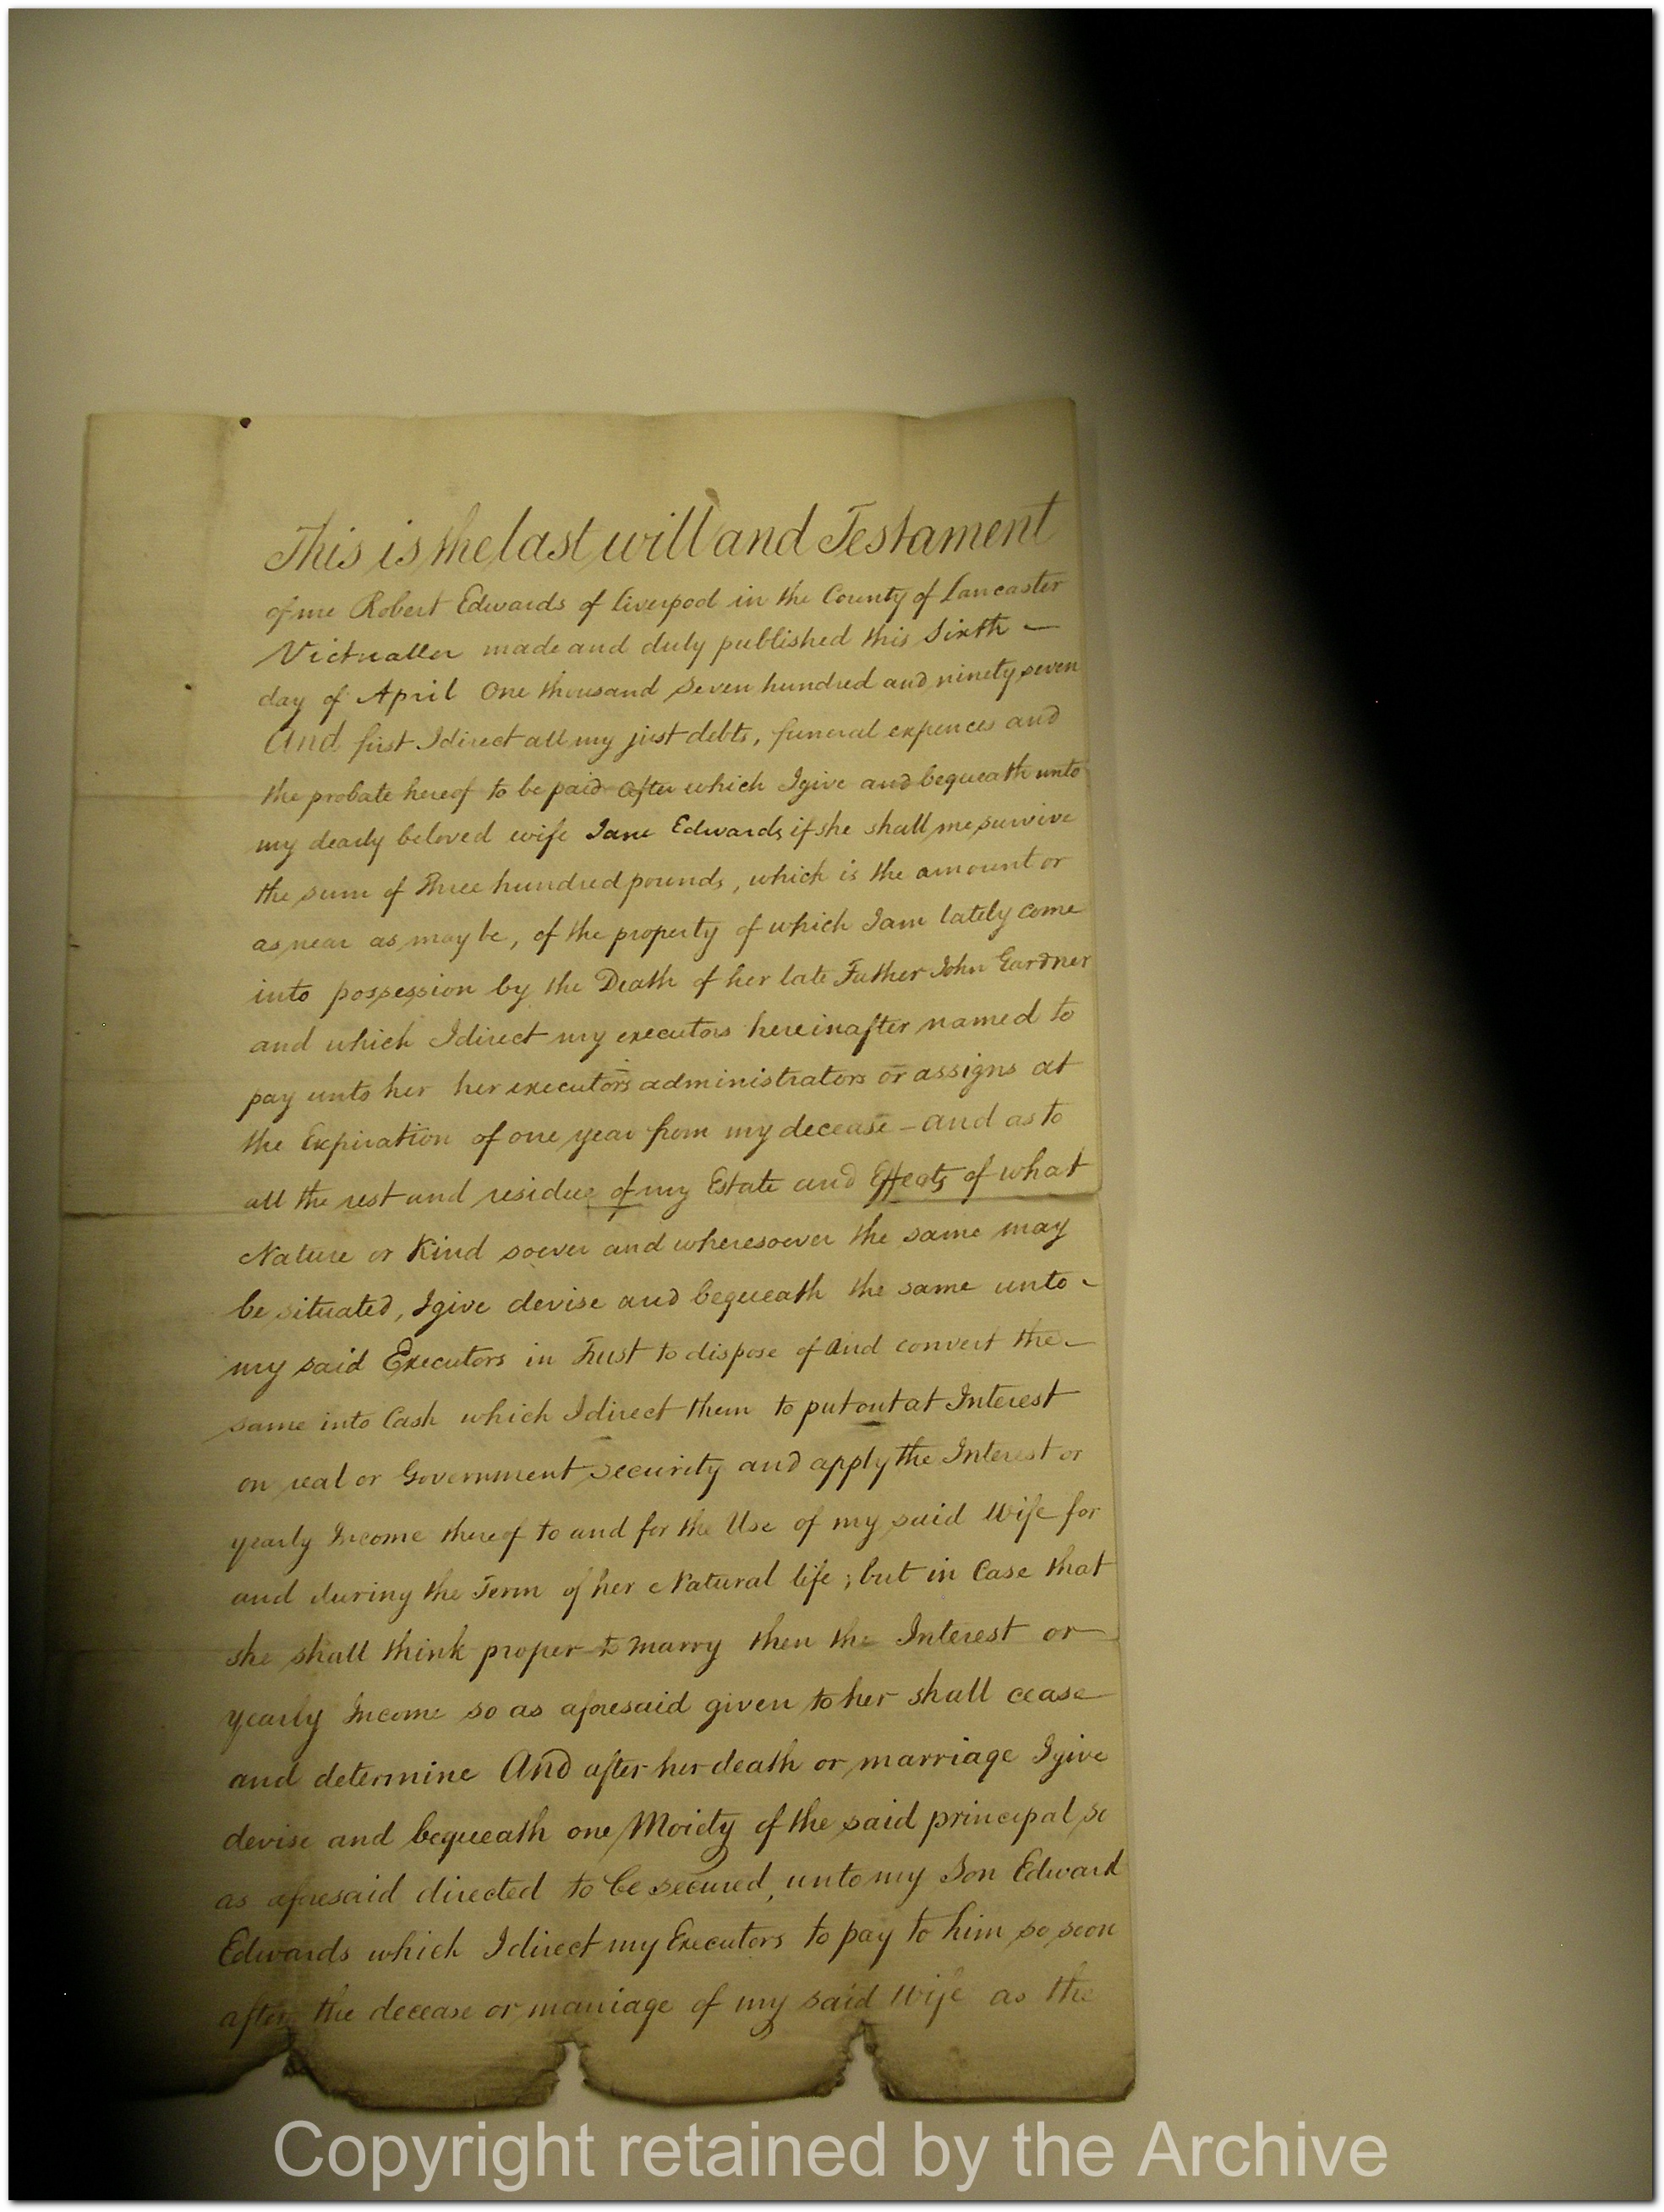 This is the last will and Testament
of me Robert Edwards of Liverpool in the County of Lancaster
Victualler made and duly published this Sixth —
day of April One thousand Seven hundred and ninety seven
And first I direct all my just debts, funeral expences and
the probate hereof to be paid After which I give and bequeath unto
my dearly beloved wife Jane Edwards if she shall me survive
the sum of Three hundred pounds, which is the amount or
as near as may be, of the property of which I am lately come
into possession by the Death of her late Father John Gardner
and which I direct my executors hereinafter named to
pay unto her her executors administrators or assigns at
the Expiration of one year from my decease – and as to
all the rest and residue of my Estate and Effects of what
Nature or Kind soever and wheresoever the same may
be situated, I give devise and bequeath the same unto –
my said Executors in Trust to dispose of and convert the –
same into Cash which I direct them to put out at Interest
on real or Government security and apply the Interest or
yearly Income thereof to and for the Use of my said Wife for
and during the Term of her Natural life; but in Case that
she shall think proper to marry then the Interest or
yearly Income so as aforesaid given to her shall cease
and determine And after her death or marriage I give
devise and bequeath one Moiety of the said principal so
as aforesaid directed to be secured, unto my Son Edward
Edwards which I direct my Executors to pay to him so soon
after the decease or marriage of my said Wife as the
Copyright retained by the Archive